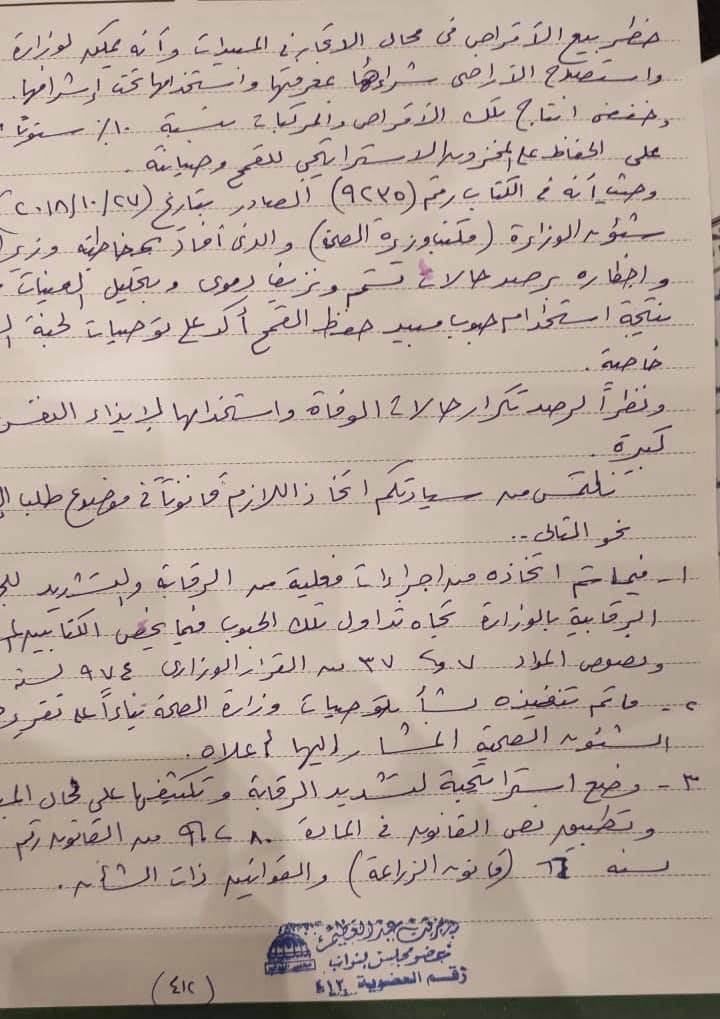 حظر بيع الأقراص فى محال الاتجار فى المبيدات وأنه يمكن لوزارة
واستصلاح الأراضى شراءها بمعرفتها واستخدامها تحت إشرافها.
وخفض انتاج تلك الأقراص والمركبات بنسبة ١٠٪ سنوياً
على الحفاظ على المخزون الاستراتيجى للقمح وصيانته.
وحيث أنه فى الكتاب رقم (٩٢٣٥) الصادر بتاريخ (٢٠١٨/١٠/٢٧)
شئون الوزارة (مكتب وزيرة الصحة) والذى أفاد بمخاطبة وزير
واخطاره برصد حالات تسمم ونزيف دموى وبتحليل العينات
نتيجة استخدام حبوب مبيد حفظ القمح أكد على توصيات لجنة
خاصة.
ونظراً لرصد تكرار حالات الوفاة واستخدامها لإيذاء النفس
كبيرة.
نلتمس من سيادتكم اتخاذ اللازم قانوناً فى موضوع طلب
نحو التالى..
١- فيما تم اتخاذه من اجراءات فعلية من الرقابة والتشديد
الرقابية بالوزارة تجاه تداول تلك الحبوب فيما يخص الكتابين
ونصوص المواد ٧ و ٣٧ من القرار الوزارى ٩٧٤ لسنة
٢- ما تم تنفيذه بشأن توصيات وزارة الصحة بناءاً على تقرير
الشئون الصحية المشار إليها أعلاه.
٣- وضع استراتيجية لتشديد الرقابة وتكثيفها على محال
وتطبيق نص القانون فى المادة ٨٠ من القانون رقم
لسنة ٦٦ (قانون الزراعة) والقوانين ذات الشأن.
د/ميرفت عبد العظيم
عضو مجلس النواب
رقم العضوية ٤١٢
(٤١٢)